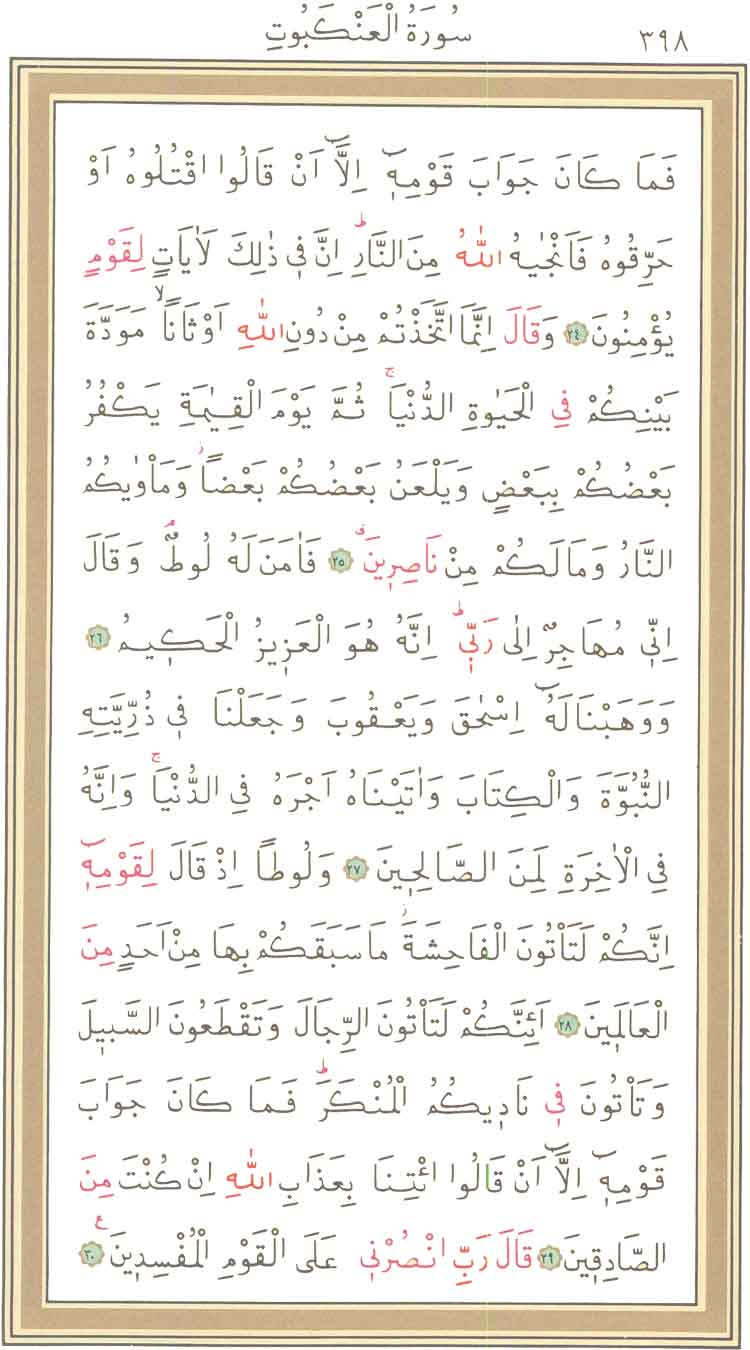 سُورَةُ الْعَنْكَبُوتِ ٣٩٨
فَمَا كَانَ جَوَابَ قَوْمِه۪ٓ اِلَّٓا اَنْ قَالُوا اقْتُلُوهُ اَوْ
حَرِّقُوهُ فَاَنْجٰيهُ اللّٰهُ مِنَ النَّارِۜ اِنَّ ف۪ي ذٰلِكَ لَاٰيَاتٍ لِقَوْمٍ
يُؤْمِنُونَ ﴿٢٤﴾ وَقَالَ اِنَّمَا اتَّخَذْتُمْ مِنْ دُونِ اللّٰهِ اَوْثَاناًۙ مَوَدَّةَ
بَيْنِكُمْ فِي الْحَيٰوةِ الدُّنْيَاۚ ثُمَّ يَوْمَ الْقِيٰمَةِ يَكْفُرُ
بَعْضُكُمْ بِبَعْضٍ وَيَلْعَنُ بَعْضُكُمْ بَعْضاًۘ وَمَأْوٰيكُمُ
النَّارُ وَمَا لَكُمْ مِنْ نَاصِر۪ينَۗ ﴿٢٥﴾ فَاٰمَنَ لَهُ لُوطٌۢ وَقَالَ
اِنّ۪ي مُهَاجِرٌ اِلٰى رَبّ۪يۜ اِنَّهُ هُوَ الْعَز۪يزُ الْحَك۪يمُ ﴿٢٦﴾
وَوَهَبْنَا لَهُٓ اِسْحٰقَ وَيَعْقُوبَ وَجَعَلْنَا ف۪ي ذُرِّيَّتِهِ
النُّبُوَّةَ وَالْكِتَابَ وَاٰتَيْنَاهُ اَجْرَهُ فِي الدُّنْيَاۚ وَاِنَّهُ
فِي الْاٰخِرَةِ لَمِنَ الصَّالِح۪ينَ ﴿٢٧﴾ وَلُوطاً اِذْ قَالَ لِقَوْمِه۪ٓ
اِنَّكُمْ لَتَأْتُونَ الْفَاحِشَةَۘ مَا سَبَقَكُمْ بِهَا مِنْ اَحَدٍ مِنَ
الْعَالَم۪ينَ ﴿٢٨﴾ اَئِنَّكُمْ لَتَأْتُونَ الرِّجَالَ وَتَقْطَعُونَ السَّب۪يلَ
وَتَأْتُونَ ف۪ي نَاد۪يكُمُ الْمُنْكَرَۜ فَمَا كَانَ جَوَابَ
قَوْمِه۪ٓ اِلَّٓا اَنْ قَالُوا ائْتِنَا بِعَذَابِ اللّٰهِ اِنْ كُنْتَ مِنَ
الصَّادِق۪ينَ ﴿٢٩﴾ قَالَ رَبِّ انْصُرْن۪ي عَلَى الْقَوْمِ الْمُفْسِد۪ينَ ﴿٣٠﴾ ع